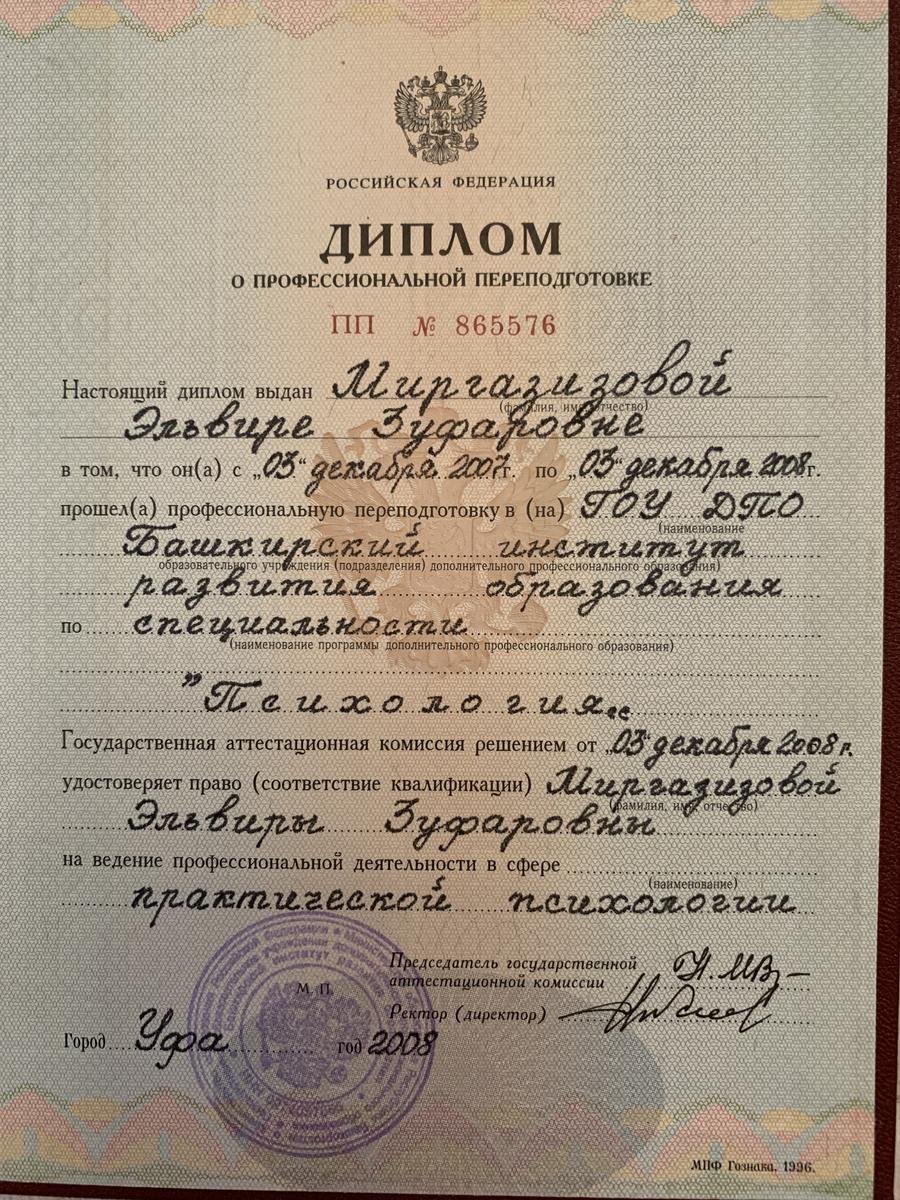 РОССИЙСКАЯ ФЕДЕРАЦИЯ
ДИПЛОМ
О ПРОФЕССИОНАЛЬНОЙ ПЕРЕПОДГОТОВКЕ
ПП № 865576
Настоящий диплом выдан Миргазизовой
(фамилия, имя, отчество)
Эльвире Зуфаровне
в том, что он(а) с „03“ декабря 2007г. по „03“ декабря 2008г.
прошел(а) профессиональную переподготовку в (на) ГОУ ДПО
(наименование
Башкирский институт
образовательного учреждения (подразделения) дополнительного профессионального образования)
развития образования
по специальности
(наименование программы дополнительного профессионального образования)
"Психология"
Государственная аттестационная комиссия решением от „03“ декабря 2008 г.
удостоверяет право (соответствие квалификации) Миргазизовой
(фамилия, имя, отчество)
Эльвиры Зуфаровны
на ведение профессиональной деятельности в сфере
(наименование)
практической психологии
Председатель государственной
аттестационной комиссии
М. П.
Ректор (директор)
Город Уфа год 2008
МПФ Гознака, 1996.